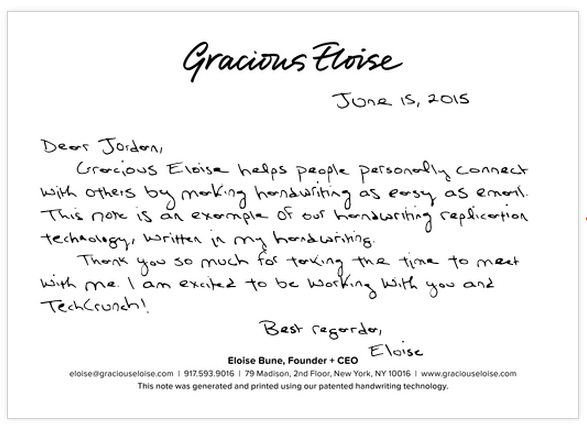 Gracious Eloise
June 15, 2015
Dear Jordan,
Gracious Eloise helps people personally connect
with others by making handwriting as easy as email.
This note is an example of our handwriting replication
technology, written in my handwriting.
Thank you so much for taking the time to meet
with me. I am excited to be working with you and
TechCrunch!
Best regards,
Eloise
Eloise Bune, Founder + CEO
eloise@graciouseloise.com | 917.593.9016 | 79 Madison, 2nd Floor, New York, NY 10016 | www.graciouseloise.com
This note was generated and printed using our patented handwriting technology.